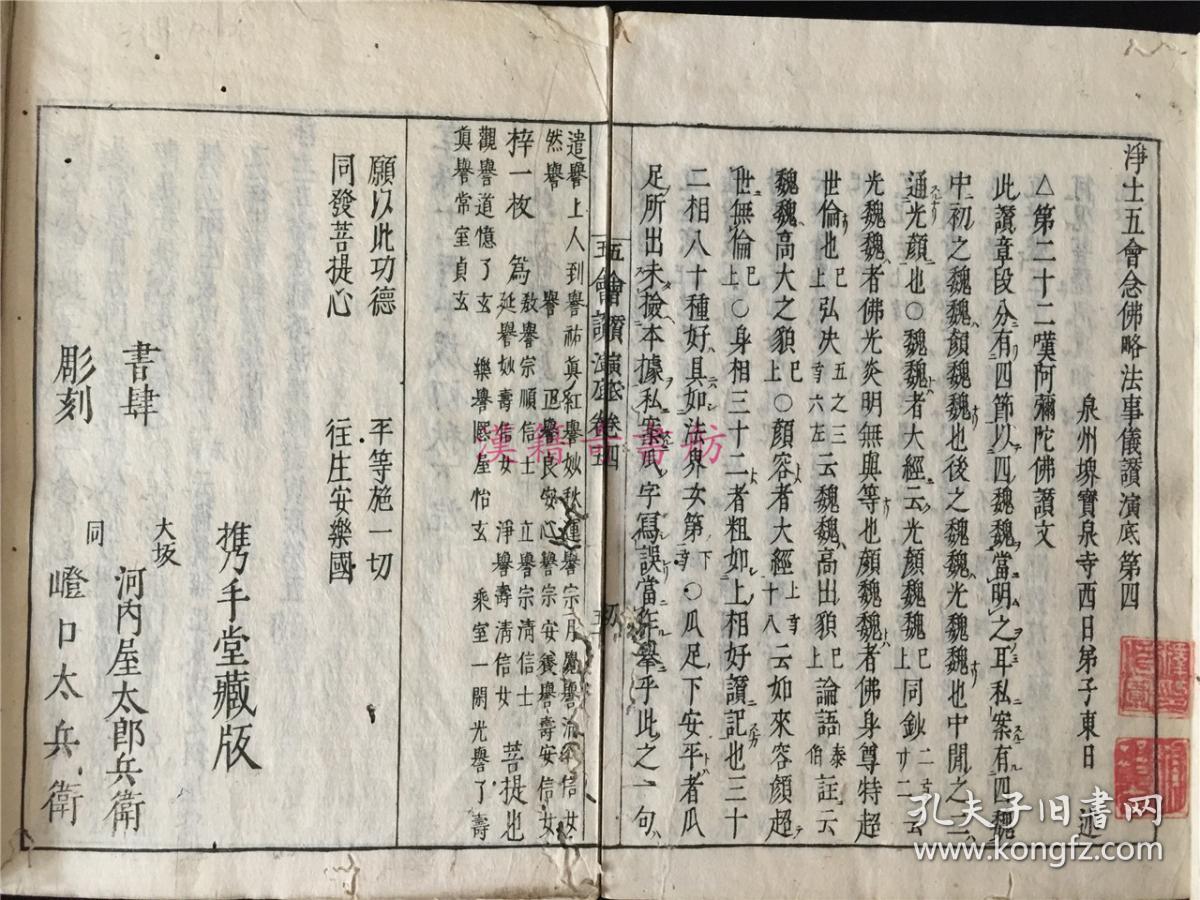 淨土五會念佛略法事儀讚演底第四
泉州堺寶泉寺西日弟子東日 述
△第二十二嘆阿彌陀佛讚文
此讚章段分有四節以四魏魏當明之耳私案有四魏
中初之魏魏顏魏魏也後之魏魏光魏魏也中間之二
通光顏也○魏魏者大經云光顏魏魏已上同鈔二云
光魏魏者佛光炎明無與等也顏魏魏者佛身尊特超
世倫也已上弘决五之三云魏魏高出貌上論語泰伯註云
魏魏高大之貌已上○顏容者大經上十八云如來容顏超
世無倫已上○身相三十二者粗如上相好讚記也三十
二相八十種好具如法界女第下○瓜足下安平者瓜
足所出未撿本據私案瓜字寫誤當作舉乎此之一句
五會讚演底卷四
遣譽上人到譽祐眞紅譽妙秋蓮譽宗
梓一枚 爲
教譽宗順信士 立譽宗清信士
延譽妙壽信女 淨譽壽清信女
菩提也
觀譽道憶了玄 樂譽凞屋怡玄 乘室一閑光譽了壽
眞譽常室貞玄
願以此功德 平等施一切
同發菩提心 往生安樂國
携手堂藏版
書肆 大坂 河內屋太郎兵衛
彫刻 同 嶝口太兵衛
漢籍奇書坊
孔夫子旧书网
www.kongfz.com